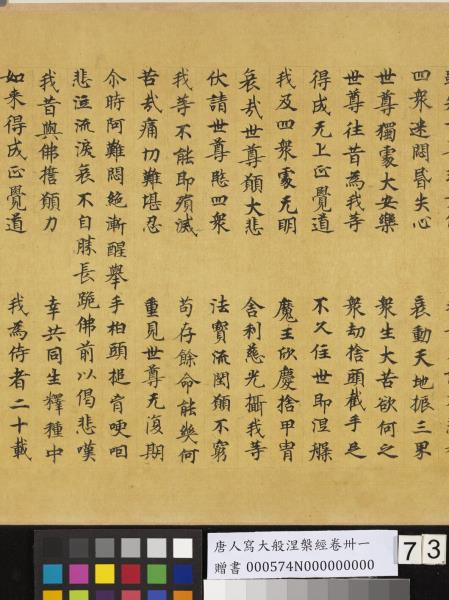 四衆迷悶昏失心　哀動天地振三界
世尊獨處大安樂　衆生大苦欲何之
世尊往昔為我等　衆劫捨頭截手足
得成无上正覺道　不久住世即涅槃
我及四衆處无明　魔王欣慶捨甲冑
哀哉世尊願大悲　舍利慈光攝我等
伏請世尊愍四衆　法寶流閏願不窮
我等不能即殞滅　苟存餘命能幾何
苦哉痛切難堪忍　重見世尊无復期
尒時阿難悶絕漸醒舉手拍頭搥胷哽咽
悲泣流淚哀不自勝長跪佛前以偈悲嘆
我昔與佛願力　幸共同生釋種中
如来得成正覺道　我為侍者二十載
唐人寫大般涅槃經卷卅一
贈書 000574N000000000
73